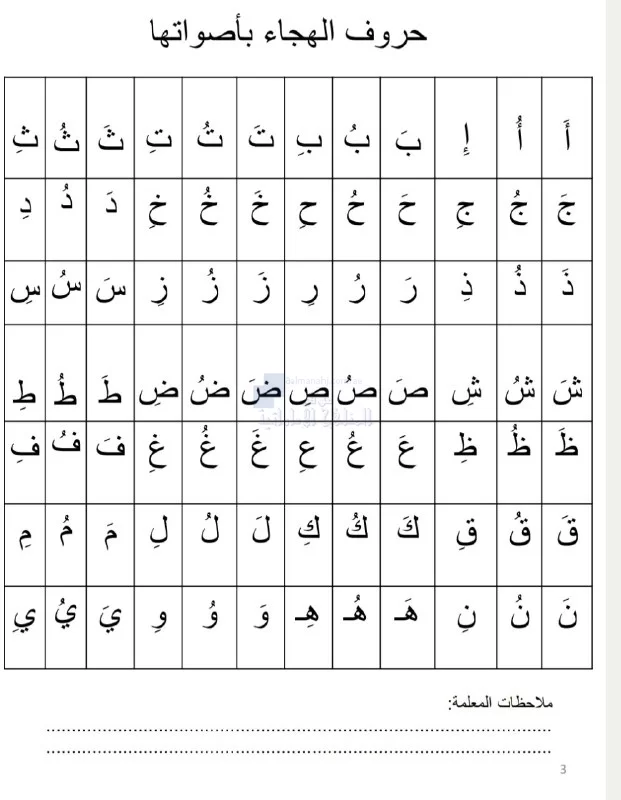 حروف الهجاء بأصواتها
أَ أُ إِ بَ بُ بِ تَ تُ تِ ثَ ثُ ثِ
جَ جُ جِ حَ حُ حِ خَ خُ خِ دَ دُ دِ
ذَ ذُ ذِ رَ رُ رِ زَ زُ زِ سَ سُ سِ
شَ شُ شِ صَ صُ صِ ضَ ضُ ضِ طَ طُ طِ
ظَ ظُ ظِ عَ عُ عِ غَ غُ غِ فَ فُ فِ
قَ قُ قِ كَ كُ كِ لَ لُ لِ مَ مُ مِ
نَ نُ نِ هَـ هُـ هِـ وَ وُ وِ يَ يُ يِ
ملاحظات المعلمة:
3